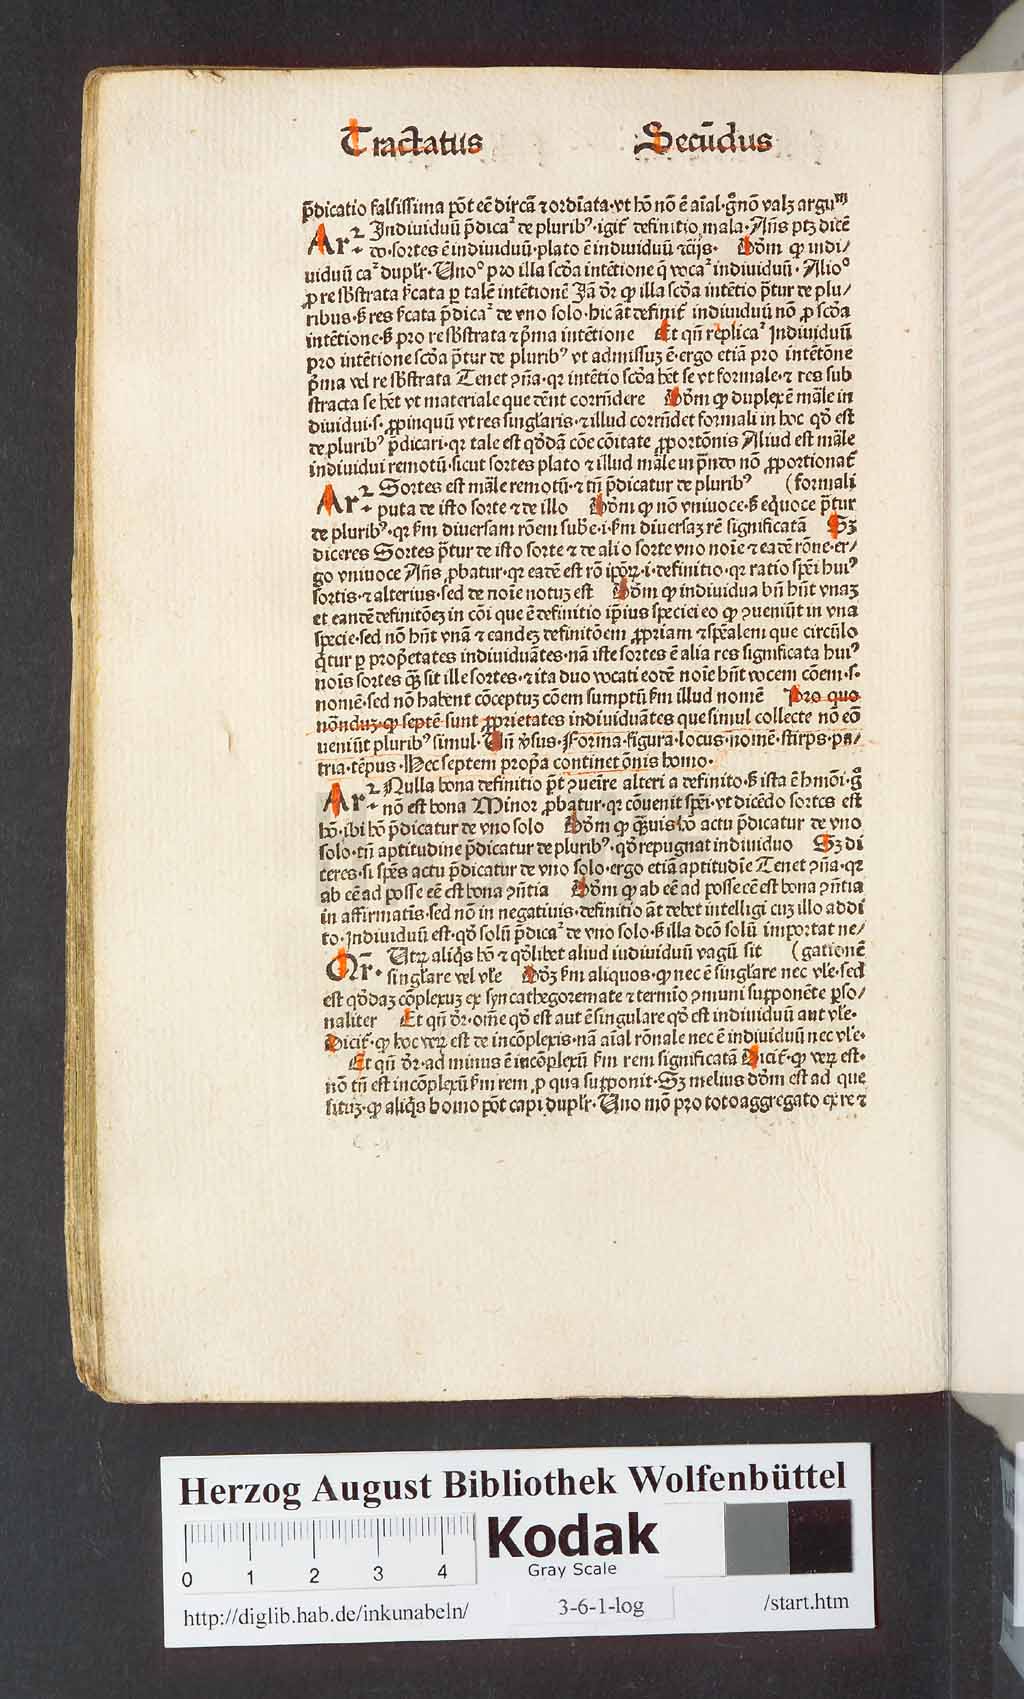 Tractatus Secūdus
p̄dicatio falsissima pōt eē dircā ⁊ ordīata·vt hō nō ē aīal·gͦ nō valꝫ arguᵐ
Ar² Indiuiduū p̄dica² de pluribꝰ·igit᷑ definitio mala·Añs ptꝫ dicē
do·sortes ē indiuiduū·plato ē indiuiduū ⁊cijs· Dōm ꝙ indi/
uiduū ca² duplr̄·Unoͦ pro illa scďa intētione q̄ voca² indiuiduū·Alioͦ
ꝓ re sb̄strata ſcata ꝑ talē intētionē Jā dr̄ ꝙ illa scďa intētio p̄tur de plu/
ribus·ꝫ res ſcata p̄dica² de vno solo·hic āt definit᷑ indiuiduū nō ꝓ scďa
intētione·ꝫ pro re sb̄strata ⁊ p̄ma intētione Et qñ replica² Indiuiduū
pro intētione scďa p̄tur de pluribꝰ vt admissuꝫ ē·ergo etiā pro intētōne
p̄ma vel re sb̄strata Tenet ꝯña·qꝛ intētio scďa hēt se vt formale·⁊ res sub
stracta se hēt vt materiale que dēnt corrn̄dere Dōm ꝙ duplex ē māle in
diuidui·s·ꝓpinquū vt res singl̄aris·⁊ illud corrn̄det formali in hoc qď est
de pluribꝰ p̄dicari·qꝛ tale est qďdā cōe cōitate ꝓportōnis Aliud est māle
indiuidui remotū·sicut sortes plato ⁊ illud māle in p̄ndo nō ꝓportionat᷑
Ar² Sortes est māle remotū·⁊ tn̄ p̄dicatur de pluribꝰ (formali
puta de isto sorte ⁊ de illo Dōm ꝙ nō vniuoce·ꝫ eq̄uoce p̄tur
de pluribꝰ·qꝛ ſm diuersam rōem subē·i·ſm diuersaꝫ rē significatā Sꝫ
diceres Sortes p̄tur de isto sorte ⁊ de alio sorte vno noīe ⁊ eadē rōne·er/
go vniuoce Añs ꝓbatur·qꝛ eadē est rō ipōꝝ·i·definitio·qꝛ ratio spēi huiꝰ
sortis·⁊ alterius·sed de noīe notuꝫ est Dōm ꝙ indiuidua bn̄ hn̄t vnaꝫ
et eandē definitōeꝫ in cōi que ē definitio ip̄ius speciei eo ꝙ ꝯueniūt in vna
specie·sed nō hn̄t vnā ⁊ eandeꝫ definitōem ꝓpriam ⁊ spēalem que circūlo
q̄tur ꝑ prop̄etates indiuiduātes·nā iste sortes ē alia res significata huiꝰ
noīs sortes q̄ꝫ sit ille sortes·⁊ ita duo vocati eodē noīe hn̄t vocem cōem·s·
nomē·sed nō habent cōceptuꝫ cōem sumptū ſm illud nomē Pro quo
nōnduꝫ ꝙ septē sunt ꝓprietates indiuiduātes que simul collecte nō eō
ueniūt pluribꝰ simul·Uñ v̄sus·Forma·figura·locus·nomē·stirps·pa/
tria·tēpus·Hec septem prop̄a continet ōnis homo·
Ar² Nulla bona definitio p̄t ꝯueīre alteri a definito·ꝫ ista ē hmōi·gͦ
nō est bona Minor ꝓbatur·qꝛ cōuenit spēi·vt dicēdo sortes est
hō·ibi hō p̄dicatur de vno solo Dōm ꝙ q̄ꝫuis hō actu p̄dicatur de vno
solo·tn̄ aptitudine p̄dicatur de pluribꝰ·qď repugnat indiuiduo Sꝫ di
ceres·si spēs actu p̄dicatur de vno solo·ergo etiā aptitudīe Tenet ꝯña·qꝛ
ab eē ad posse eē est bona ꝯn̄tia Dōm ꝙ ab eē ad posse eē est bona ꝯn̄tia
in affirmatis·sed nō in negatiuis·definitio āt debet intelligi cuꝫ illo addi
to·Indiuiduū est·qď solū p̄dica² de vno solo·ꝫ illa dcō solū importat ne/
Qr̄· Utꝝ aliq̄s hō ⁊ qďlibet aliud indiuiduū vagū sit (gationē
singl̄are vel vl̄e Dōꝫ ſm aliquos·ꝙ nec ē singl̄are nec vl̄e·sed
est qďdaꝫ cōplexuꝫ ex syncathegoremate ⁊ termīo ꝯmuni supponēte ꝑso/
naliter Et qñ dr̄·om̄e qď est aut ē singulare qď est indiuiduū aut vl̄e·
Dicit᷑·ꝙ hoc veꝝ est de incōplexis·nā aīal rōnale nec ē indiuiduū nec vl̄e·
Et qñ dr̄·ad minus ē incōplexū ſm rem significatā Dicit᷑·ꝙ veꝝ est·
nō tn̄ est incōplexū ſm rem ꝓ qua supponit·Sꝫ melius dōm est ad que
situꝫ·ꝙ aliq̄s homo pōt capi duplr̄·Uno mō pro toto aggregato ex re ⁊
Herzog August Bibliothek Wolfenbüttel
Kodak
Gray Scale
0 1 2 3 4
http://diglib.hab.de/inkunabeln/ 3-6-1-log /start.htm